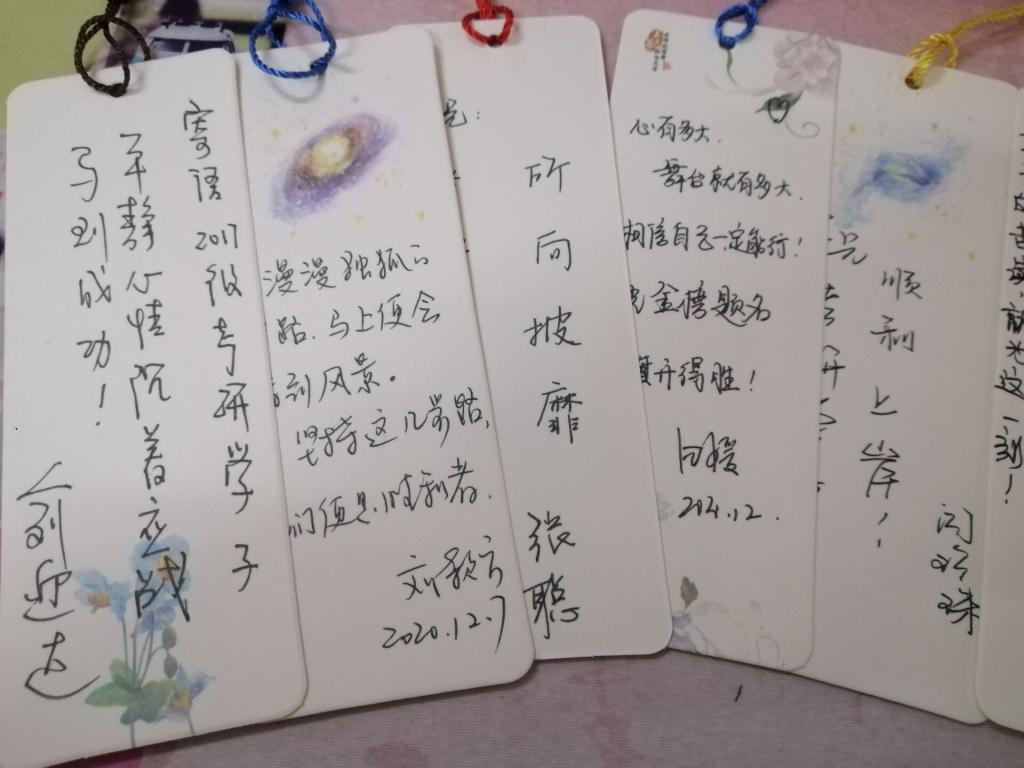 寄语2017级考研学子
平静心情沉着应战
马到成功！
漫漫独孤
路.马上便会
到风景。
坚持这几步路,
们便是胜利者.
刘
2020.12.7
所向披靡
张聪
心有多大.
舞台就有多大.
相信自己一定能行!
金榜题名
旗开得胜!
白媛
顺利上岸!
闫
珠